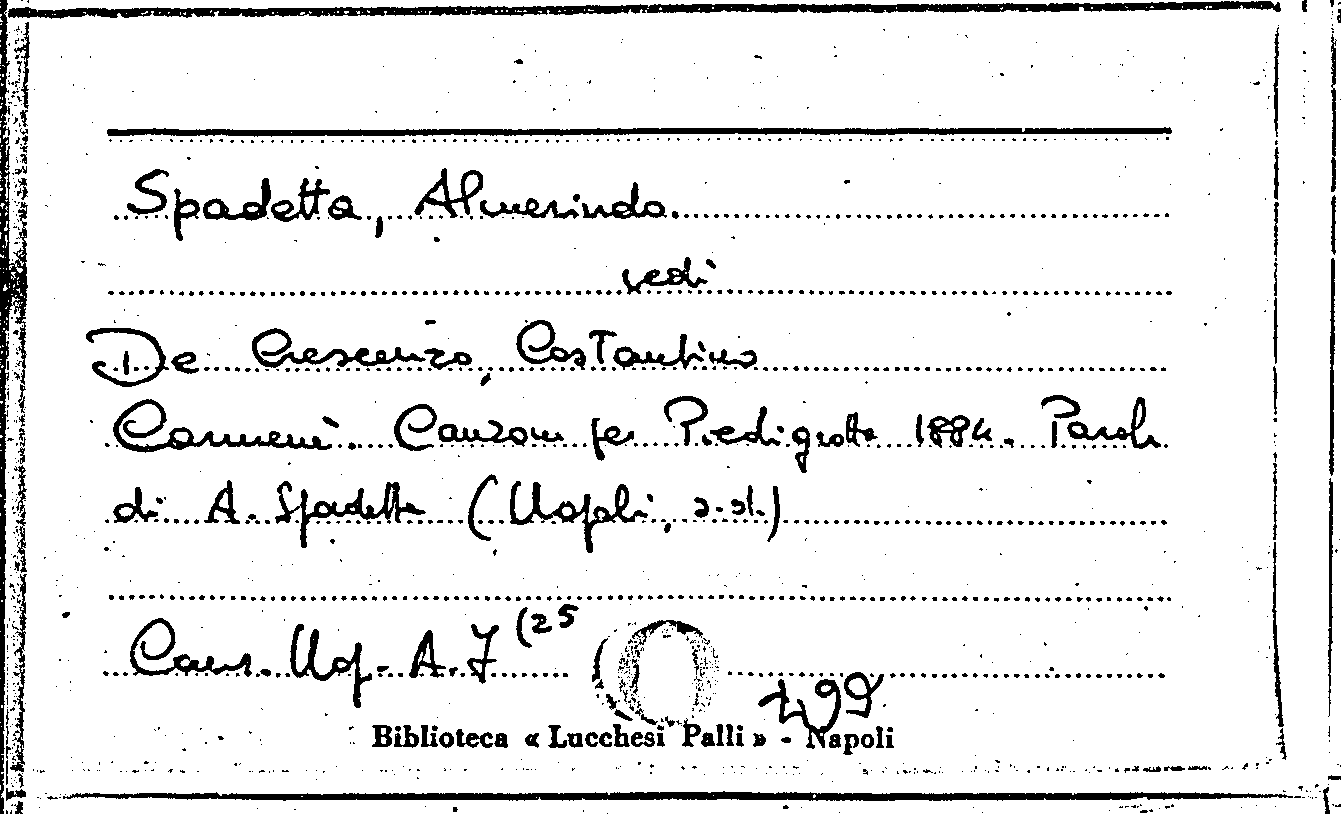 Spadetta, Almerindo.
vedi
De Crescenzo, Costantino
Carmenì. Canzone per Piedigrotta 1884. Parole
di A. Spadetta (Napoli, s.st.)
Canz. Nap. A.7 (25
499
Biblioteca « Lucchesi Palli » - Napoli